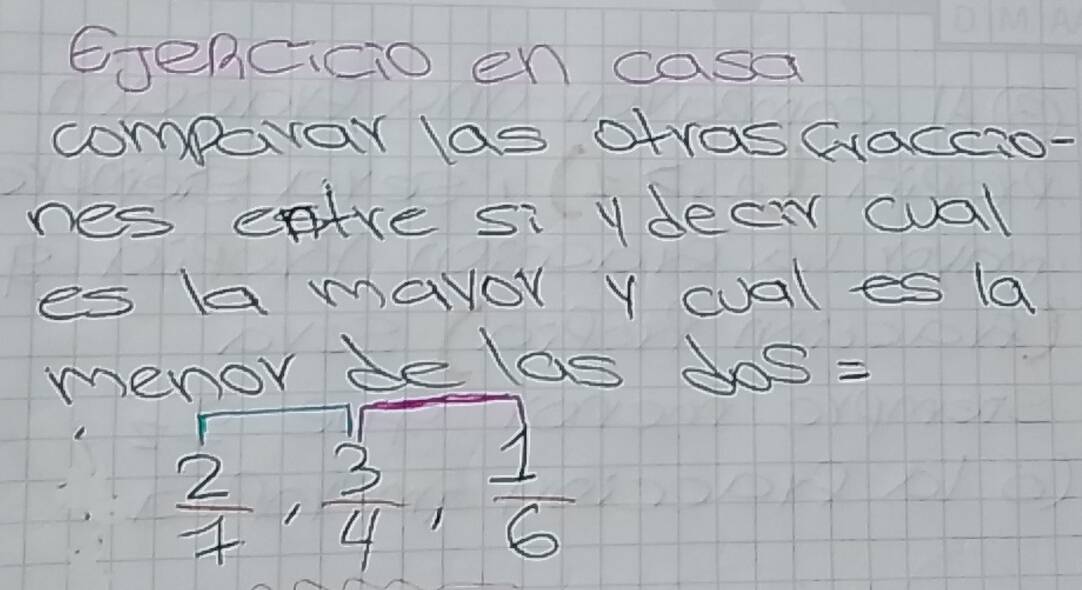 Ejercicio en casa
comparar las otras fraccio-
nes entre si y decir cual
es la mayor y cual es la
menor de las dos =
2/7 , 3/4 , 1/6